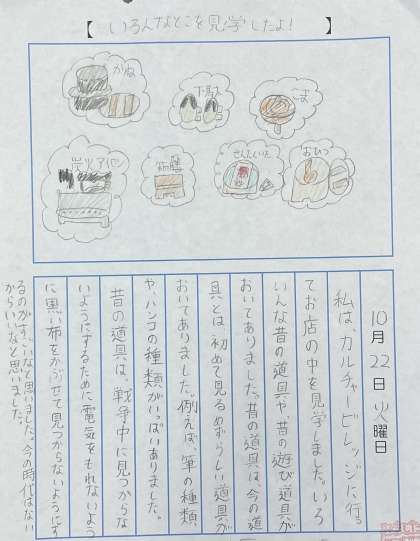 【いろんなとこを見学したよ!】
かね
下駄
こま
炭火アイロン
箱膳
せんたくいた
おひつ
10月22日火曜日
私は、カルチャービレッジに行っ
てお店の中を見学しました。いろ
いんな昔の道具や、昔の遊び道具が
おいてありました。昔の道具は、今の道
具とは、初めて見るめずらしい道具が
おいてありました。例えば、筆の種類
や、ハンコの種類がいっぱいありました。
昔の道具は、戦争中に見つからな
いようにするために電気をもれないよう
に黒い布をかぶせて見つからないようにす
るのがすごいなと思いました。今の時代はない
からいいなと思いました。